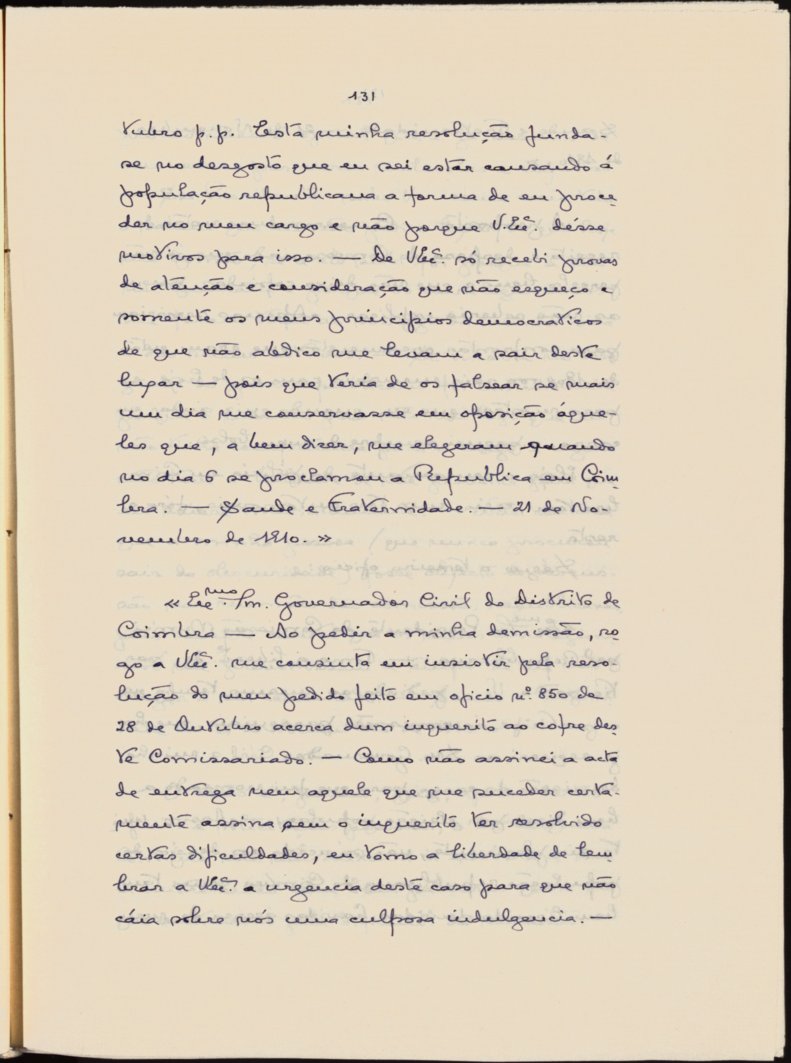 131
tubro p.p. Esta minha resolução funda-
se no desgosto que eu sei estar causando á
população republicana a forma de eu proce-
der no meu cargo e não porque V. Exª. désse
motivos para isso. — De VExª. só recebi provas
de atenção e consideração que não esqueço e
somente os meus principios democraticos
de que não abdico me levam a sair deste
lugar — pois que teria de os falsear se mais
um dia me conservasse em oposição áque-
les que, a bem dizer, me elegeram quando
no dia 6 se proclamou a Republica em Coim-
bra. — Saude e Fraternidade. — 21 de No-
vembro de 1910. »
« Exmo. Sm. Governador Civil do Distrito de
Coimbra — Ao pedir a minha demissão, ro-
go a VExª. me consinta em insistir pela reso-
lução do meu pedido feito em oficio nº. 850 de
28 de Outubro acerca dum inquerito ao cofre des-
te Comissariado. — Como não assinei a acta
de entrega nem aquele que me suceder certa-
mente assina sem o inquerito ter resolvido
certas dificuldades, eu tomo a liberdade de lem-
brar a VExª. a urgencia deste caso para que não
cáia sobre nós uma culposa indulgencia. —